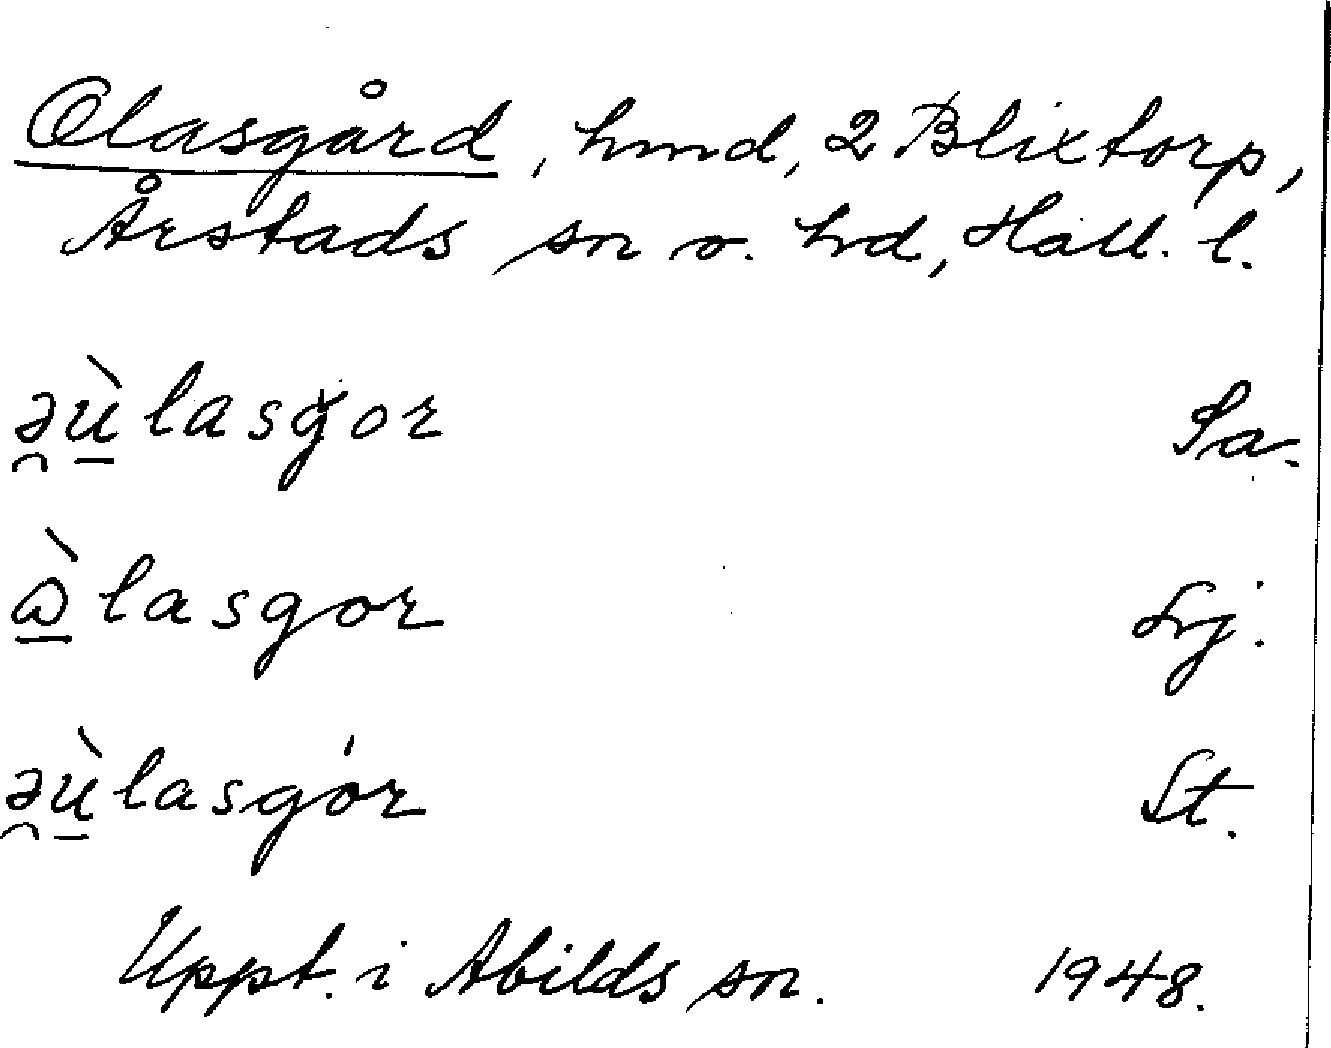 Olasgård, hmd, 2 Blixtorp,
Årstads sn o. hd, Hall. l.
ə̯ù̱lasgor Sa.
ɷ̱̀lasgor Lrj.
ə̯ù̱lasgór St.
Uppt. i Abilds sn. 1948.